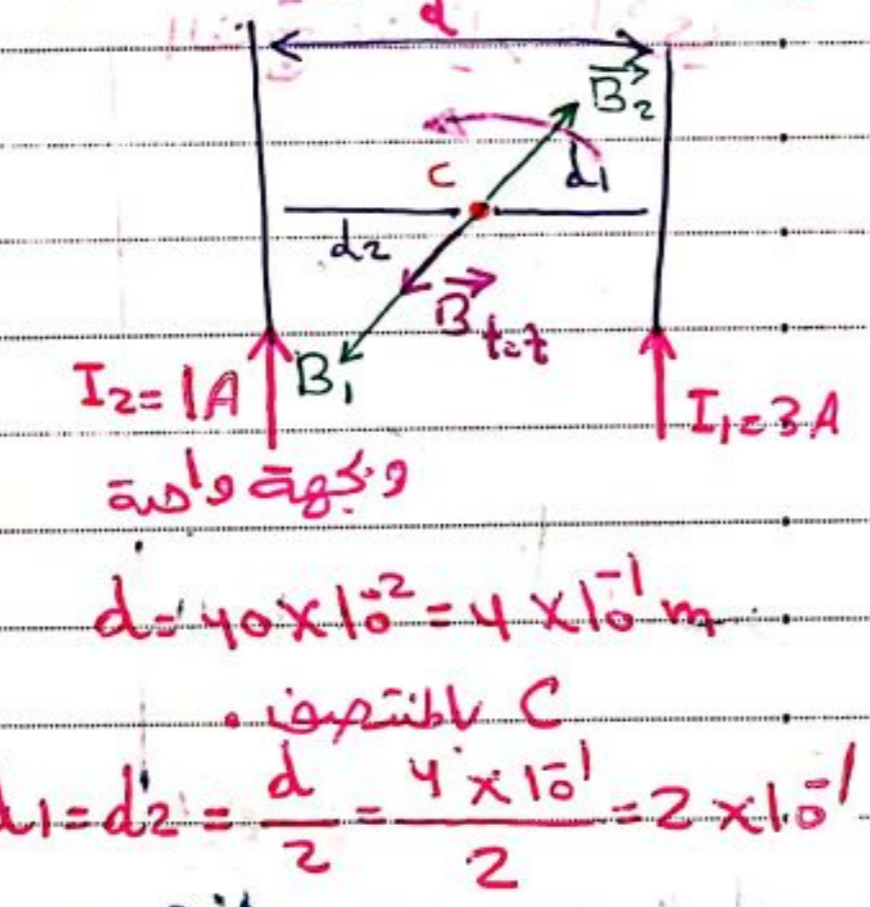 d
B₂
C
d1
d2
B t=t
I2=1A
B1
I1=3A
وبجهة واحدة
d = 40×10⁻² = 4×10⁻¹ m
C بالمنتصف .
d1 = d2 = d/2 = 4×10⁻¹/2 = 2×10⁻¹